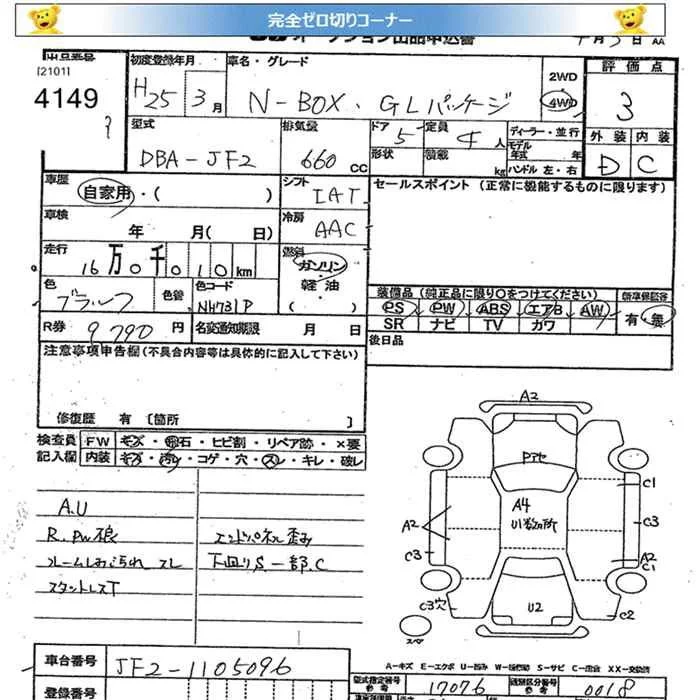 完全ゼロ切りコーナー
オークション出品申込書
月 日 AA
出品番号
[2101]
4149
初度登録年月
H25 3月
車名・グレード
N-BOX・GLパッケージ
2WD
4WD
評価点
3
外装 内装
D C
型式
DBA-JF2
排気量
660 CC
ドア 5
形状
定員 4人
積載 kg
ディーラー・並行
モデル年式 年
ハンドル 左・右
車歴
自家用・( )
シフト
IAT
セールスポイント (正常に機能するものに限ります)
車検
年 月( 日)
冷房
AAC
走行
16万0千010km
燃料
ガソリン・軽油
( )
色
ブラック
色替
色コード
NH731P
装備品 (純正品に限り○をつけてください)
PS PW ABS エアB AW
SR ナビ TV カワ
新車保証書
有・無
R券
9790円
名変通知期限 月 日
後日品
注意事項申告欄 (不具合内容等は具体的に記入して下さい)
修復歴 有 〔箇所 〕
検査員記入欄
FW キズ・飛石・ヒビ割・リペア跡・×要
内装 キズ・汚れ・コゲ・穴・スレ・キレ・破レ
A.U
スタットレスT
エンドパネル歪み
下回りS 一部.C
A2
A4
U1数カ所
U2
A2
C3
C3穴
C1
C3
A2
C1
C2
スペア
A-キズ E-エクボ S-サビ XX-交換済
車台番号
JF2-1105096
登録番号
型式指定番号
参考
17076
類別区分番号
参考
0018